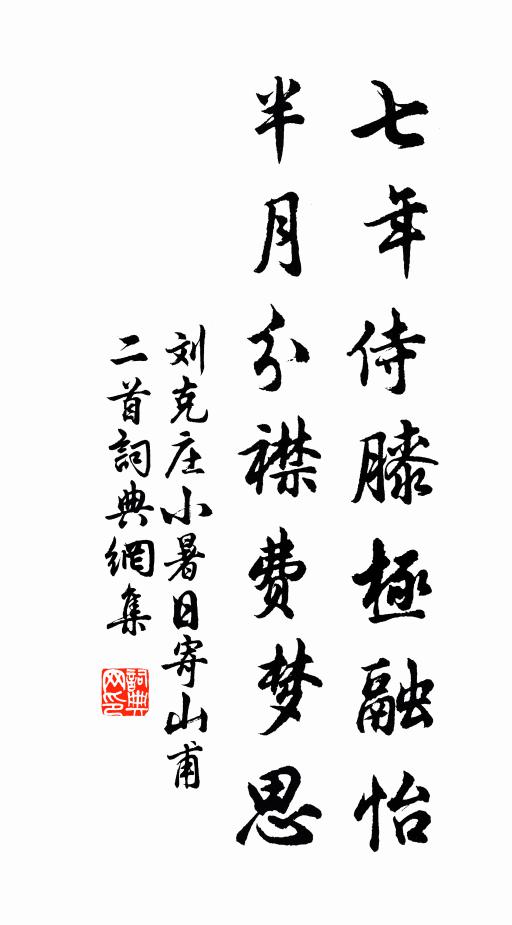 七年侍膝極融怡
半月分襟费梦思
刘克庄小暑日寄山甫
二首詞典網集
詞典
网印